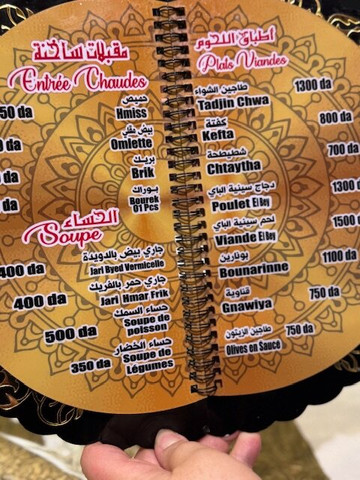 مقبلات ساخنة
Entrée Chaudes
حميص
50 da
Hmiss
بيض مقلي
Omlette
da
بريك
Brik
da
بوراك
Bourek
01 Pcs
da
الحساء
Soupe
جاري بيض بالدويدة
400 da
Jari Byed Vermicelle
جاري حمر بالفريك
400 da
Jari Hmar Frik
حساء السمك
500 da
Soupe de poisson
حساء الخضار
350 da
Soupe de Légumes
أطباق اللحوم
Plats Viandes
طاجين الشواء
1300 da
Tadjin Chwa
كفتة
800 da
Kefta
شطيطحة
700 da
Chtaytha
دجاج سينية الباي
1300
Poulet El Bey
لحم سينية الباي
1500
Viande El Bey
بونارين
1100 da
Bounarinne
قناوية
750 da
Gnawiya
طاجين الزيتون
750 da
Olives en Sauce